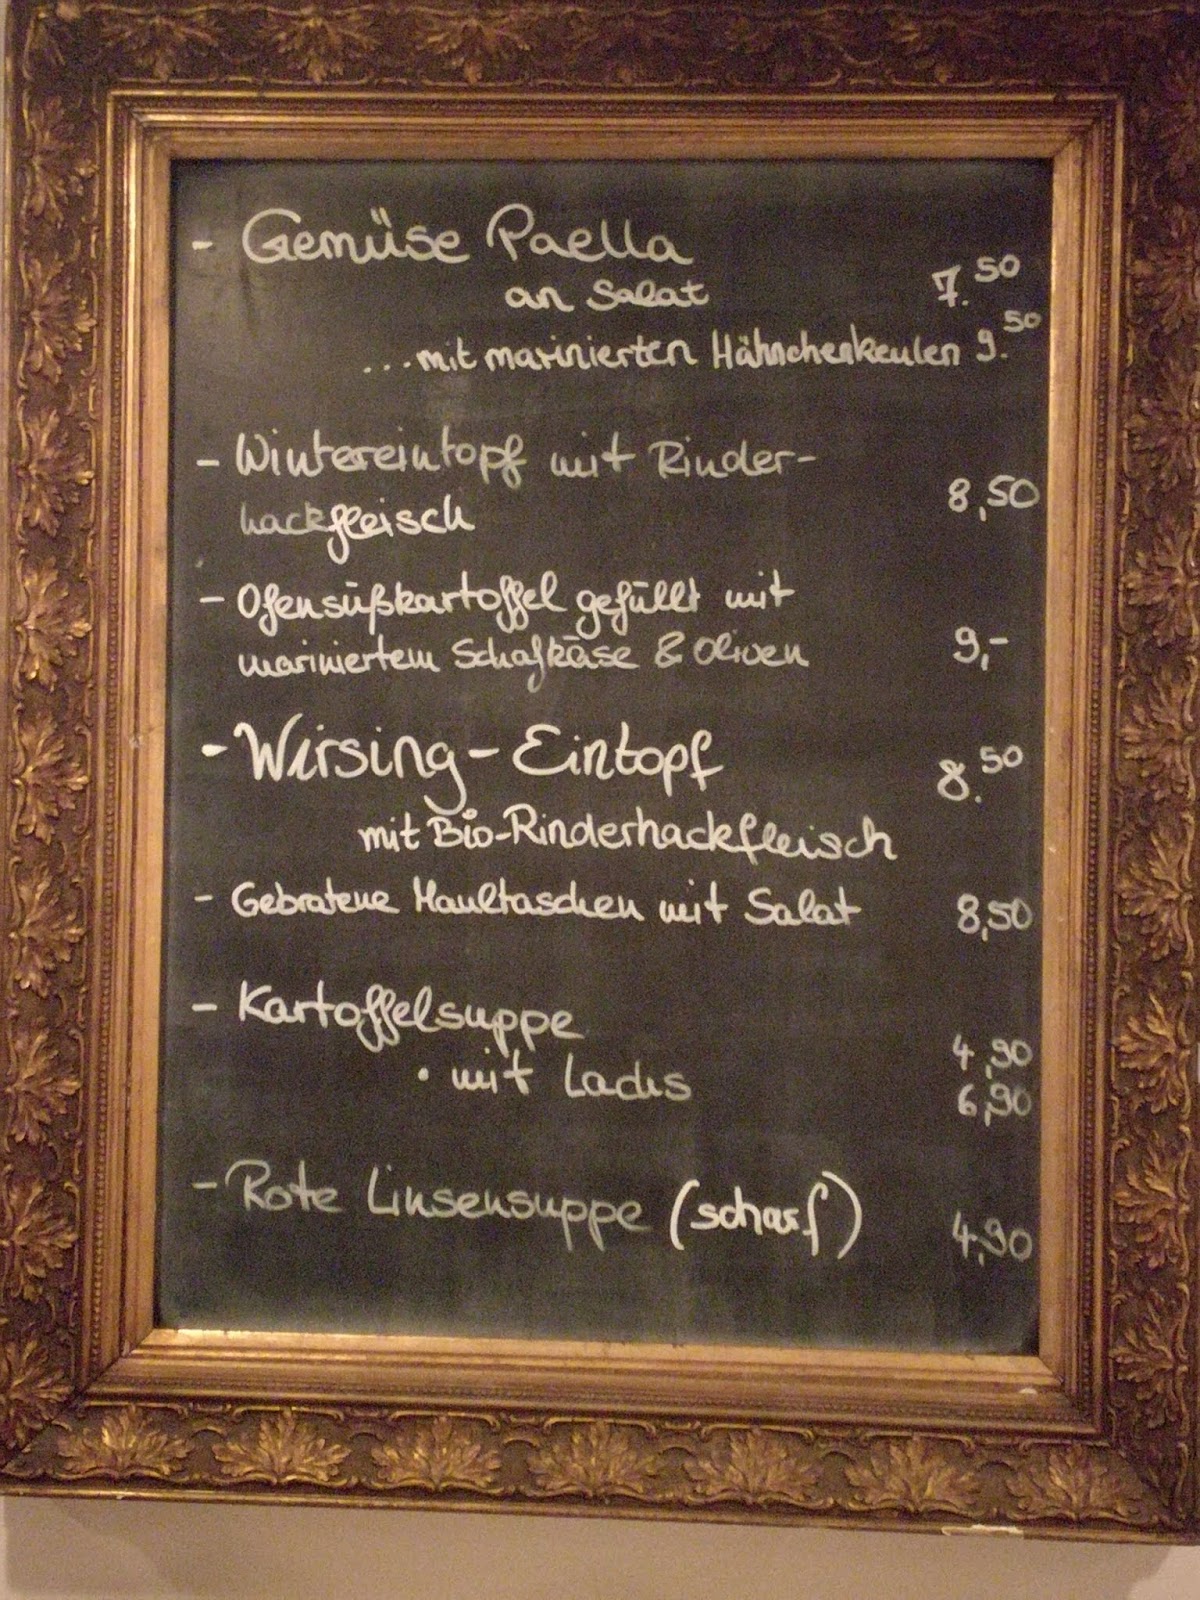 - Gemüse Paella
an Salat 7.50
...mit marinierten Hähnchenkeulen 9.50
- Wintereintopf mit Rinder-
hackfleisch 8,50
- Ofensüßkartoffel gefüllt mit
mariniertem Schafkäse & Oliven 9,-
- Wirsing-Eintopf 8.50
mit Bio-Rinderhackfleisch
- Gebratene Maultaschen mit Salat 8,50
- Kartoffelsuppe 4,90
• mit Lachs 6,90
- Rote Linsensuppe (scharf) 4,90